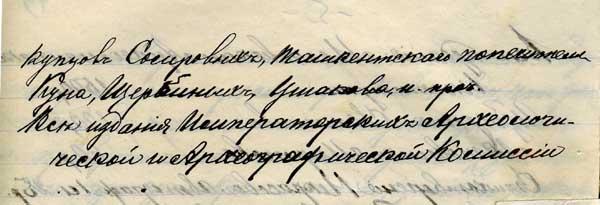 купцовъ Сосировыхъ, Ташкентскаго попечителя
Куна, Щербиныхъ, Ушакова, и проч.
Всѣ изданія Императорскихъ Археологи-
ческой и Археографической Комиссіи